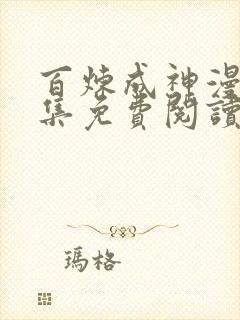 百煉成神漫
集免費閱讀
瑪格